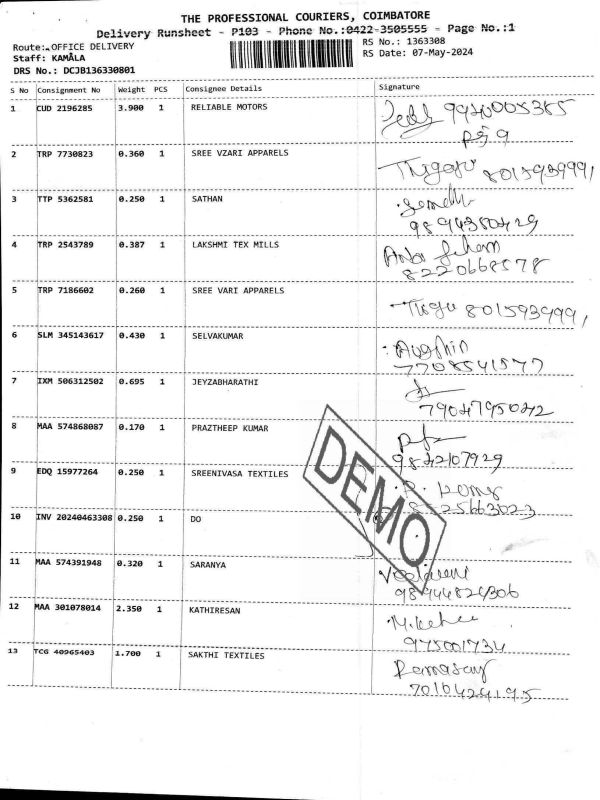 THE PROFESSIONAL COURIERS, COIMBATORE
Delivery Runsheet - P103 - Phone No.:0422-3505555 - Page No.:1
Route: OFFICE DELIVERY RS No.: 1363308
Staff: KAMALA RS Date: 07-May-2024
DRS No.: DCJB136330801
S No Consignment No Weight PCS Consignee Details Signature
1 CUD 2196285 3.900 1 RELIABLE MOTORS 9940005385
2 TRP 7730823 0.360 1 SREE VZARI APPARELS 8015939991
3 TTP 5362581 0.250 1 SATHAN
9894380429
4 TRP 2543789 0.387 1 LAKSHMI TEX MILLS
8220668578
5 TRP 7186602 0.260 1 SREE VARI APPARELS 8015939991
6 SLM 345143617 0.430 1 SELVAKUMAR
7708541577
7 IXM 506312502 0.695 1 JEYZABHARATHI
7904795042
8 MAA 574868087 0.170 1 PRAZTHEEP KUMAR
9842107929
9 EDQ 15977264 0.250 1 SREENIVASA TEXTILES
DEMO
10 INV 20240463308 0.250 1 DO
11 MAA 574391948 0.320 1 SARANYA
12 MAA 301078014 2.350 1 KATHIRESAN
975001734
13 TCG 40965403 1.700 1 SAKTHI TEXTILES Ramasamy